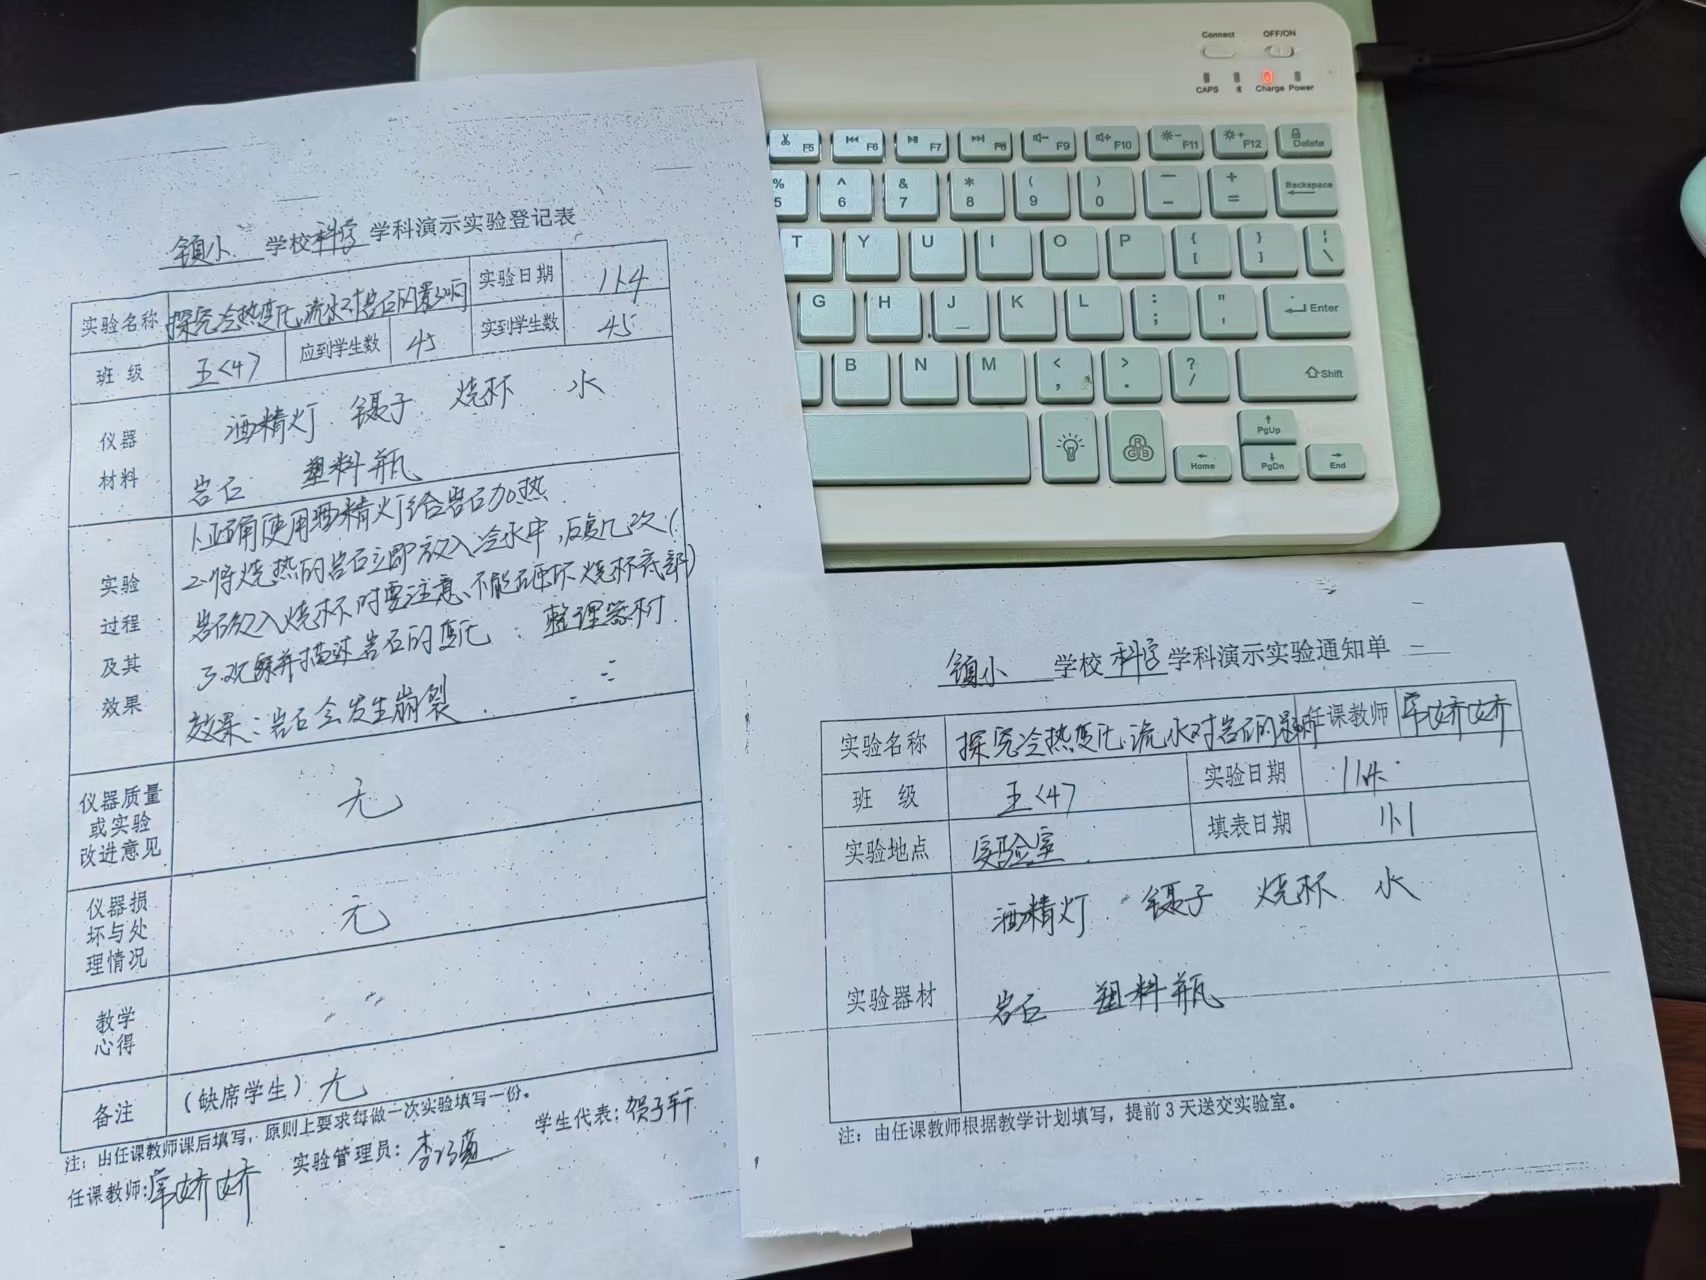 镇小 学校科学学科演示实验登记表
实验名称 探究冷热变化、流水对岩石的影响 实验日期 11.4
班 级 五<4> 应到学生数 45 实到学生数 45
仪器
材料
酒精灯 镊子 烧杯 水
岩石 塑料瓶
实验
过程
及其
效果
1.正确使用酒精灯给岩石加热
2.将烧热的岩石立即放入冷水中,反复几次(
岩石放入烧杯时要注意、不能砸坏烧杯底部)
3.观察并描述岩石的变化 整理器材
效果:岩石会发生崩裂.
仪器质量
或实验
改进意见
无
仪器损
坏与处
理情况
无
教学
心得
备注 (缺席学生)无
注:由任课教师课后填写,原则上要求每做一次实验填写一份。
任课教师: 娇娇 实验管理员:李 学生代表:贺子轩
镇小 学校科学学科演示实验通知单
实验名称 探究冷热变化、流水对岩石的影响 任课教师 娇娇
班 级 五<4> 实验日期 11.4
实验地点 实验室 填表日期 11.1
实验器材
酒精灯 镊子 烧杯 水
岩石 塑料瓶
注:由任课教师根据教学计划填写,提前3天送交实验室。
Connect OFF/ON
CAPS Charge Power
F5 F6 F7 F8 F9 F10 F11 F12 Delete
% 5 ^ 6 & 7 * 8 ( 9 ) 0 — - + = Backspace
T Y U I O P { [ } ] | \
G H J K L : ; " ' Enter
B N M < , > . ? / Shift
R G B Home PgUp PgDn End